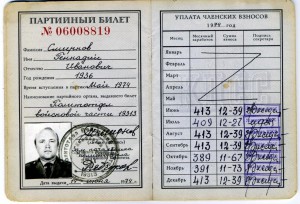 ПАРТИЙНЫЙ БИЛЕТ
№ 06008819
Фамилия Смирнов
Имя Геннадий
Отчество Иванович
Год рождения 1936
Время вступления в партию Май 1974
Наименование партийного органа, выдавшего билет
Политотдел
войсковой части 19313
М. П.
Дата выдачи
УПЛАТА ЧЛЕНСКИХ ВЗНОСОВ
1974 год
Месяц
Месячный заработок
Членский взнос
Подпись секретаря
Январь
Февраль
Март
Апрель
Май
Июнь 413 12-39
Июль 409 12-27
Август 413 12-39
Сентябрь 413 12-39
Октябрь 389 11-67
Ноябрь 391 11-73
Декабрь 413 12-39